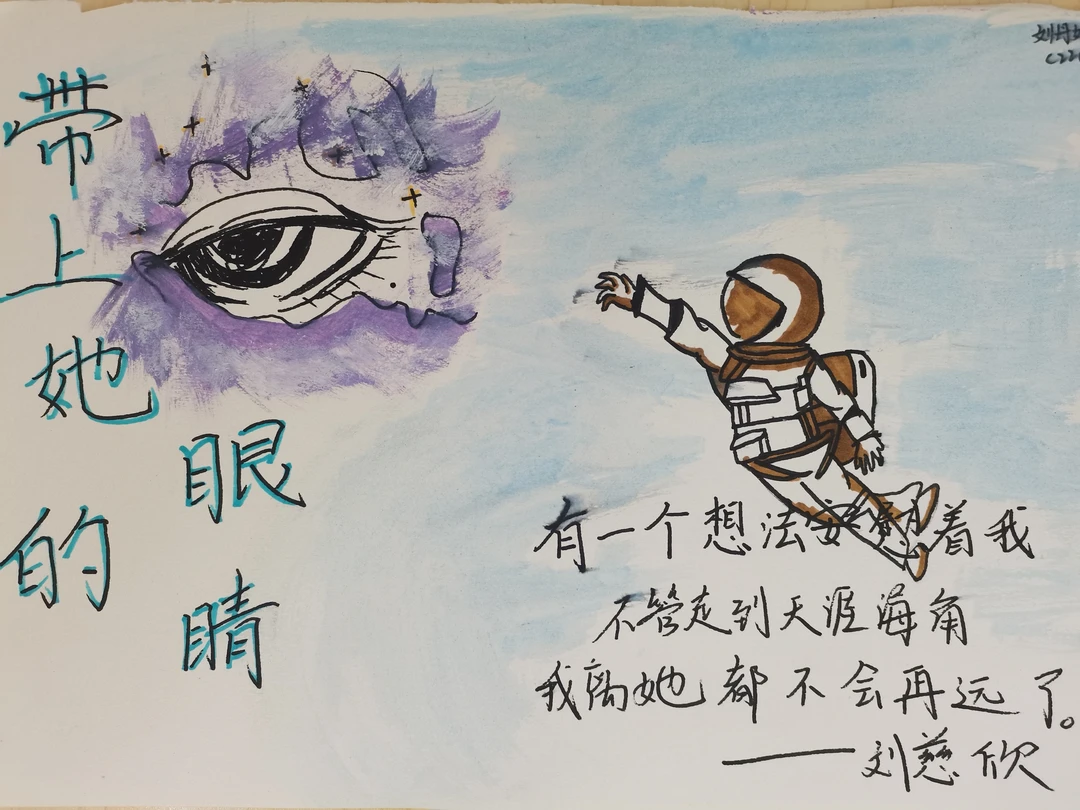 带上她的
眼睛
刘丹
C22
有一个想法安慰着我
不管走到天涯海角
我离她都不会再远了。
——刘慈欣